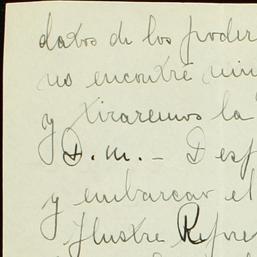 datos de los poder
no encontré nin
y tiraremos la
D.m.- Desp
y embarcar el
Ilustre Repre